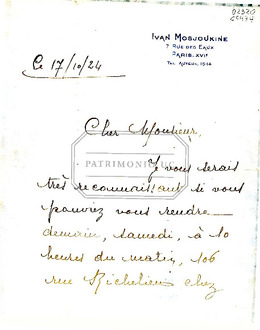 IVAN MOSJOUKINE
7 RUE DES EAUX
PARIS. XVIe
TEL. AUTEUIL
Le 17/10/24
Cher Monsieur,
PATRIMONIQUE
Je vous serais
très reconnaissant si vous
pouviez vous rendre
demain, samedi, à 10
heures du matin, 106
rue Richelieu chez